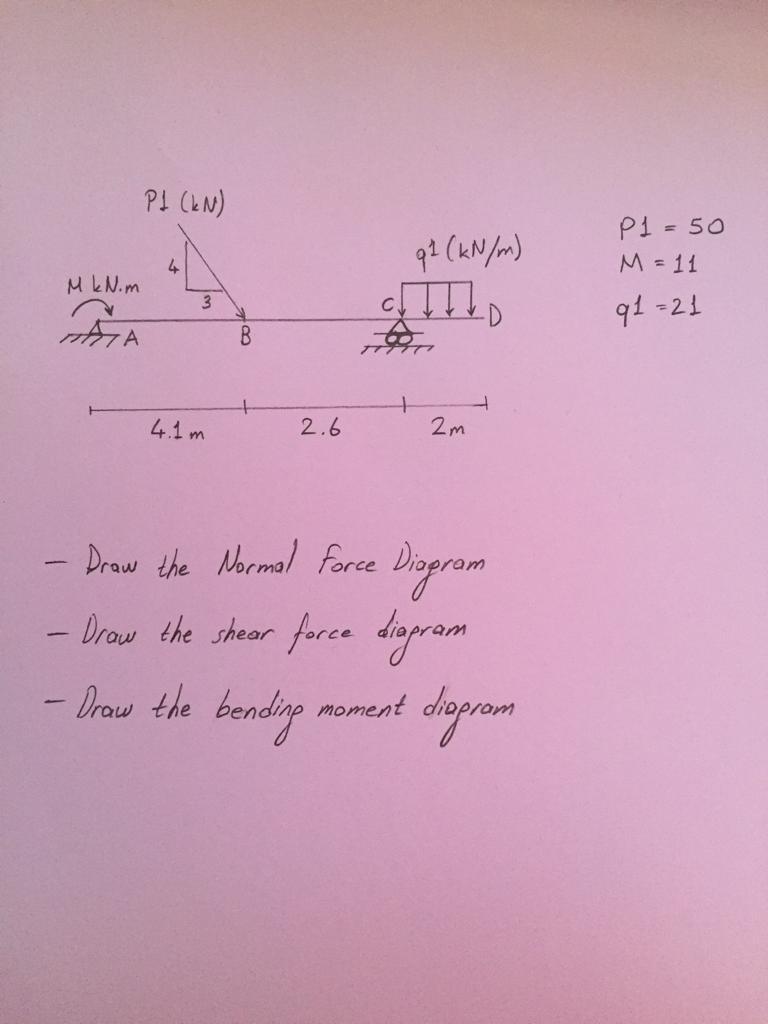 P1 (kN)
4
3
M kN.m
q1 (kN/m)
A
B
C
D
P1 = 50
M = 11
q1 = 21
4.1 m
2.6
2m
- Draw the Normal Force Diagram
- Draw the shear force diagram
- Draw the bending moment diagram